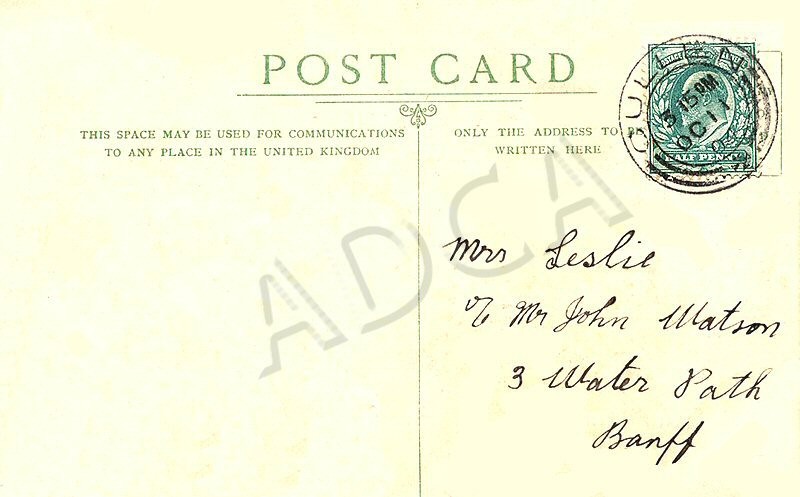 POST CARD
THIS SPACE MAY BE USED FOR COMMUNICATIONS
TO ANY PLACE IN THE UNITED KINGDOM
ONLY THE ADDRESS TO
WRITTEN HERE
CULLEN
3 15 PM
OC 11
HALF PENNY
ADCA
Mrs Leslie
c/o Mr John Watson
3 Water Path
Banff